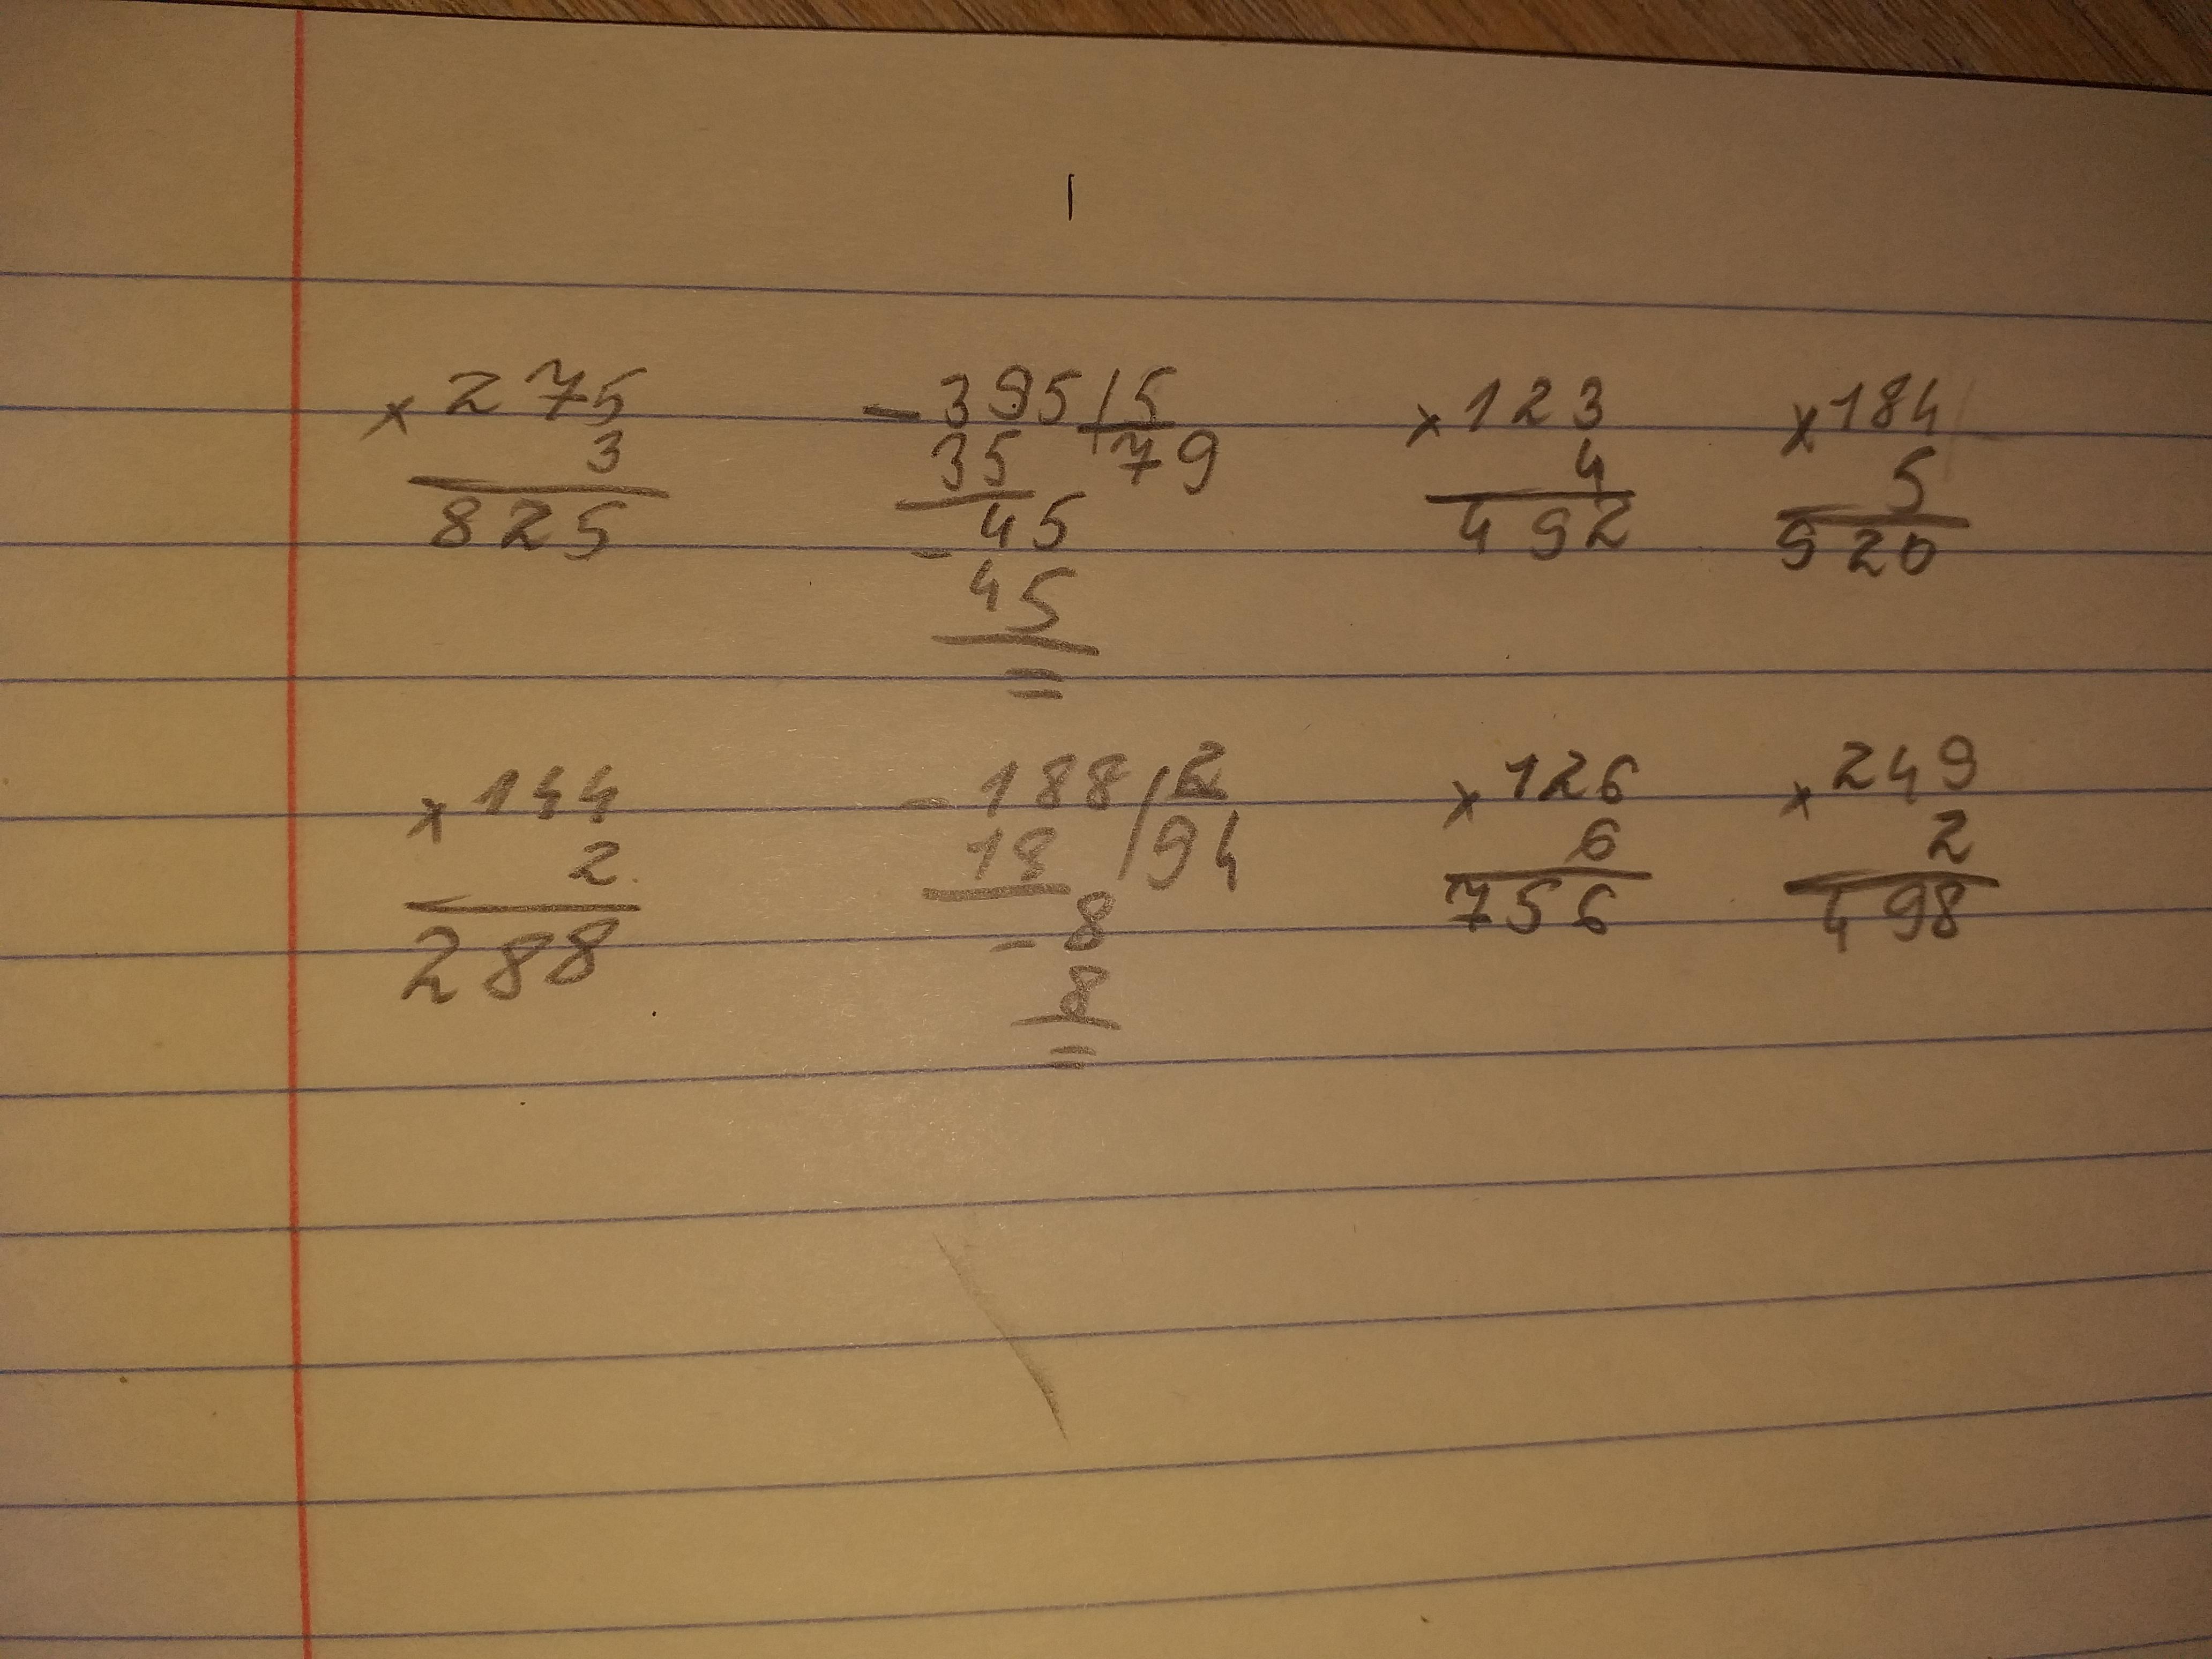 |
× 275   - 395 | 5   × 123   × 184
3   35   79   4   5
825   45   492   920
- 45
=
× 144   - 188 | 2   × 126   × 249
2   18   94   6   2
288   - 8   756   498
8
=